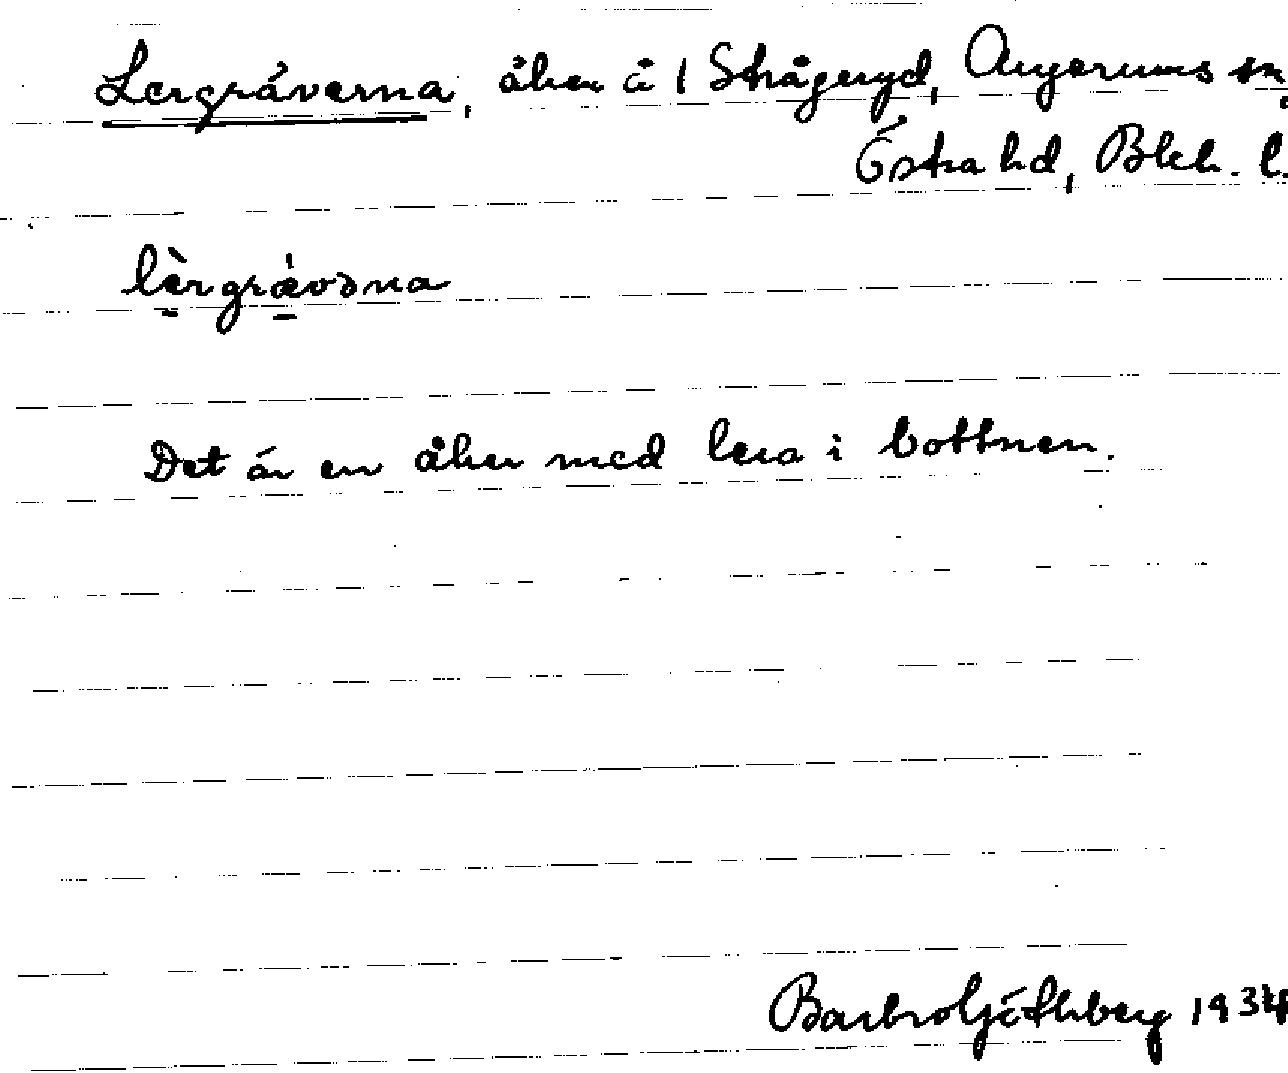 Lergräverna, åker å 1 Strågeryd, Augerums sn,
Östra hd, Blek. l.
lèrgrǽvəna
Det är en åker med lera i bottnen.
Barbro Göthberg 1934